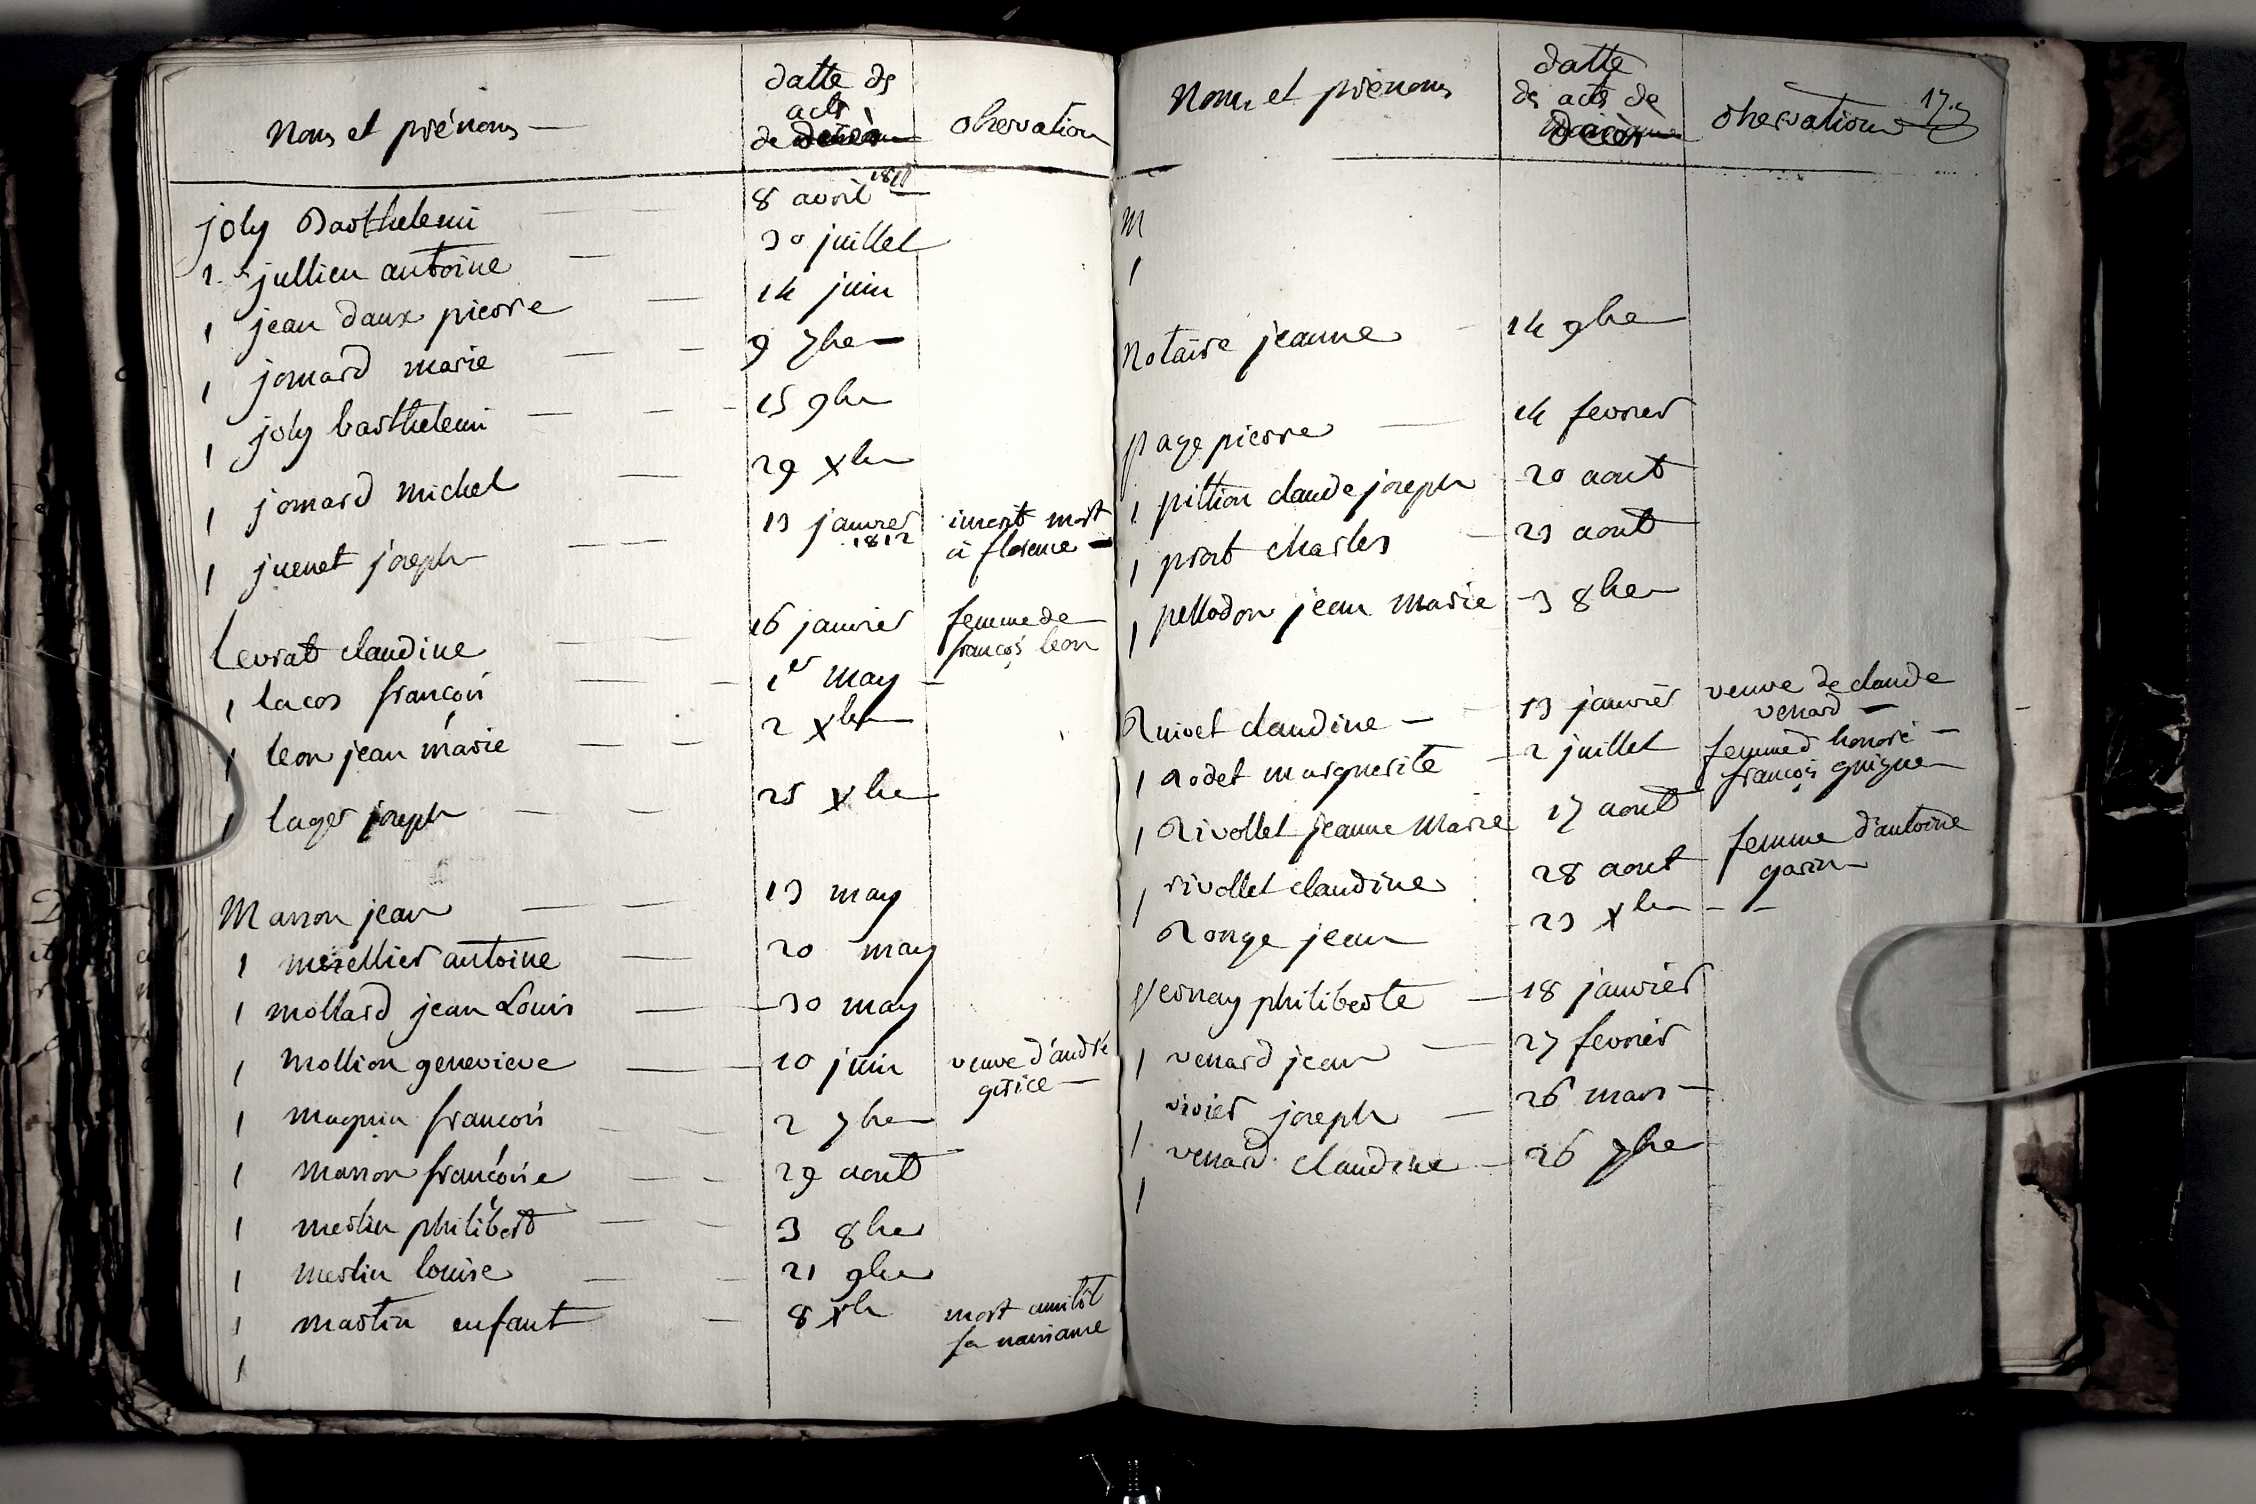 Noms et prénoms
datte ds
acts
de décès
observation
joly Barthelemi 8 avril
2. jullien antoine 30 juillet
1 jean daux pierre 14 juin
1 jomard marie 9 7bre
1 joly barthelemi 15 9bre
1 jomard michel 29 xbre
1 juenet joseph 13 janvier 1812 inscrit mort
à florence
Levrat claudine 16 janvier femme de
françois leon
1 lacos françois 1er may
1 leon jean marie 2 xbre
1 lager joseph 25 xbre
Masson jean 13 may
1 merellier antoine 20 may
1 mollard jean Louis 30 may
1 mollion genevieve 10 juin veuve d'andré
gerice
1 magnin françois 2 7bre
1 masson françoise 29 aout
1 merlin philibert 3 8bre
1 merlin louise 21 9bre
1 martin enfant 8 xbr mort aussitôt
sa naissance
1
Noms et prénoms
datte
ds acts de
décès
observations
173
M
1
Notaire jeanne 14 9bre
page pierre 14 fevrier
1 pittion claude joseph 20 aout
1 prost charles 23 aout
1 pellodon jean marie 3 8bre
Ruivet claudine 13 janvier veuve de claude
venard
1 Rodet marguerite 2 juillet femme d honoré
françois guigue
1 Rivollet jeanne Marie 17 aout
1 rivollet claudine 28 aout femme d'antoine
garin
Ronge jean 23 xbre
Vernay philiberte 18 janvier
1 venard jean 27 fevrier
vivier joseph 26 mars
1 venard claudine 26 7bre
1